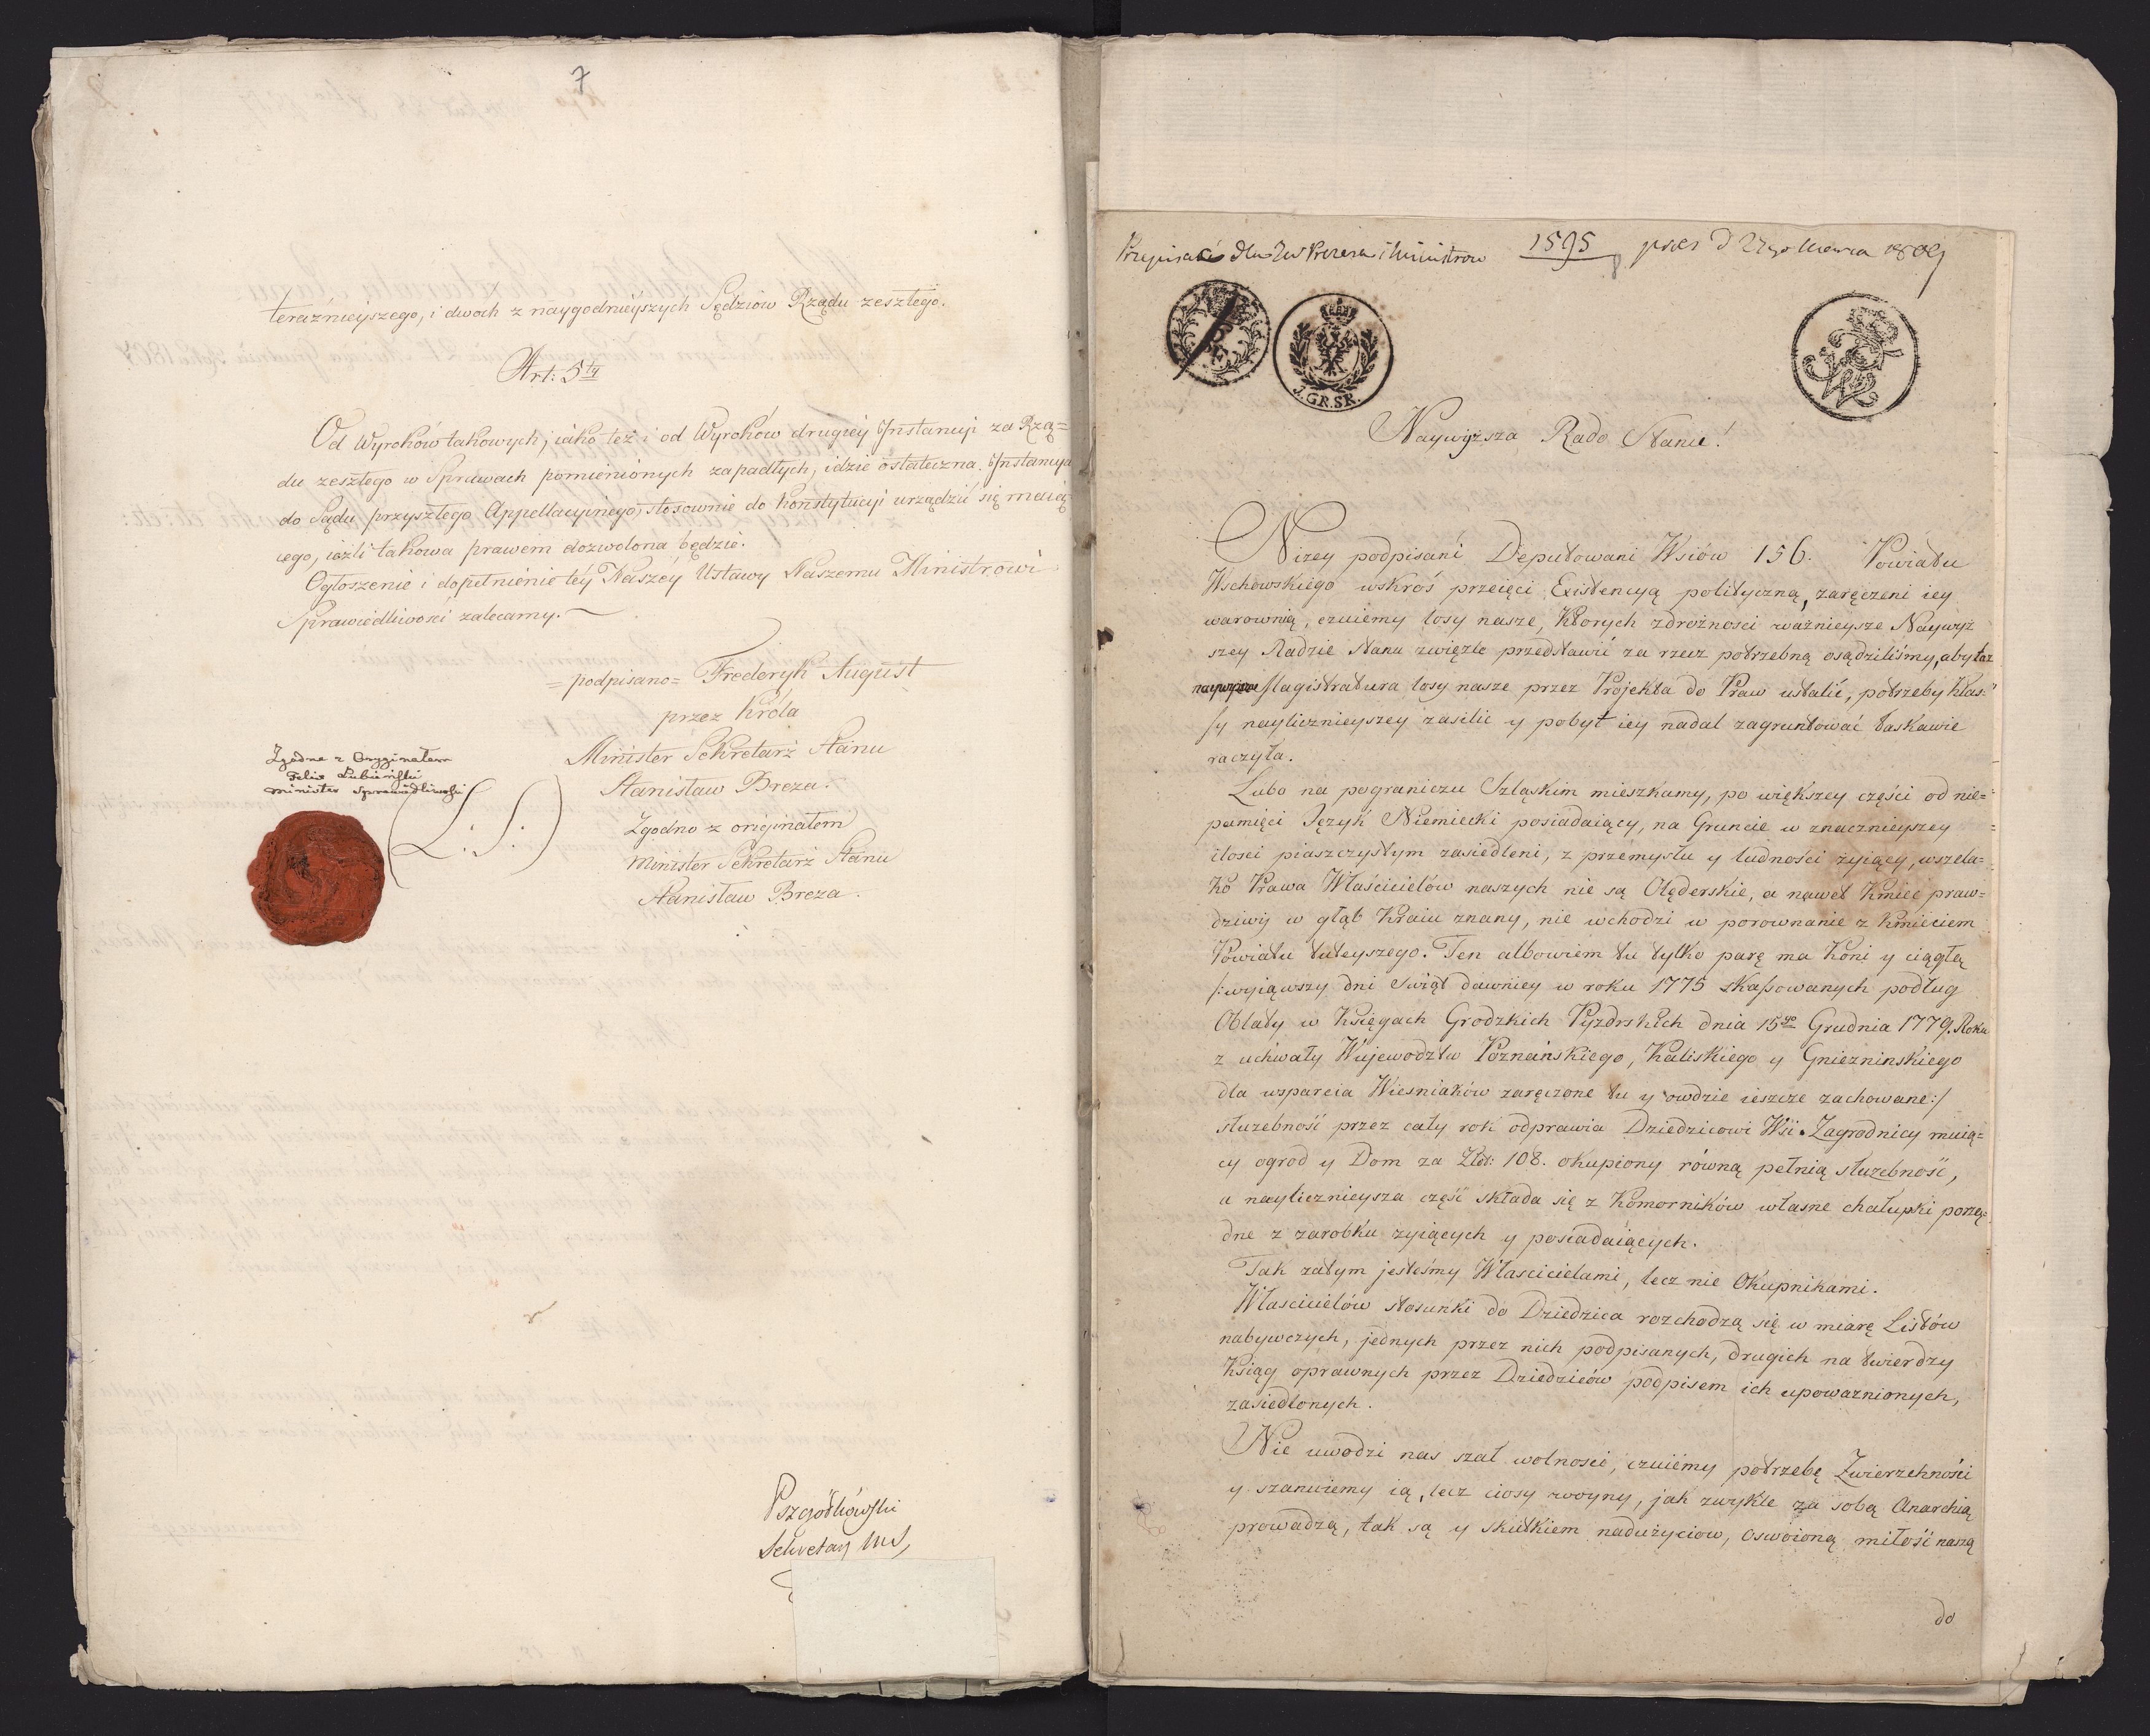 7
teraźnieyszego, i dwoch z naygodnieyszych Sędziow Rządu zeszłego.
Art: 5ty
Od Wyroków takowych, iako też i od Wyroków drugiey Instancyi za Rzą=
du zeszłego w Sprawach pomienionych zapadłych, idzie ostateczna Instancya
do Sądu przyszłego Appellacyinego, stosownie do Konstytucyi urządzić się maią=
cego, ieżli takowa prawem dozwolona będzie.
Ogłoszenie i dopełnienie téy Naszéy Ustawy Naszemu Ministrowi
Sprawiedliwości zalecamy.
= podpisano = Frederyk August
przez Króla
Minister Sekretarz Stanu
Stanisław Breza.
Zgodno z originałem
Minister Sekretarz Stanu
Stanisław Breza.
Zgodne z Oryginałem
Felix Łubieński
Minister Sprawiedliwości
(L. S.)
Sekretarz MS,
Przypisać dla JW Prezesa i Ministrow 1595 pres d 27go Marca 1809
3. GR. SR.
Naywyższa Rado Stanu!
Niżey podpisani Deputowani Wsiów 156. Powiatu
Wschowskiego wskroś przeięci Existencyą polityczną, zaręczeni iey
warownią, czuiemy losy nasze, których zdrożności ważnieysze Naywyż
szey Radzie Stanu zwięźle przedstawić za rzecz potrzebną osądziliśmy, aby taż
Magistratura losy nasze przez Projekta do Praw ustalić, potrzeby Klas=
sy nayliczniejszey zasilić y pobyt iey nadal zagruntować łaskawie
raczyła.
Lubo na pograniczu Szląskim mieszkamy, po większey części od nie=
pamięci Język Niemiecki posiadaiący, na Gruncie w znacznieyszey
ilosci piaszczystym zasiedleni, z przemysłu y ludności żyiący, wszela=
ko Prawa Właścicielów naszych nie są Olęderskie, a nawet Kmieć praw=
dziwy w głąb Kraiu znany, nie wchodzi w porownanie z Kmieciem
Powiatu tuteyszego. Ten albowiem tu tylko parę ma Koni y ciągłą
/: wyiąwszy dni Swiąt dawniey w roku 1775 skassowanych podług
Oblaty w Księgach Grodzkich Pyzdrskich dnia 15go Grudnia 1779. Roku
z uchwały Wojewodztw Poznańskiego, Kaliskiego y Gniezninskiego
dla wsparcia Wiesniaków zaręczone tu y owdzie ieszcze zachowane :/
służebność przez cały rok odprawia Dziedzicowi Wsi. Zagrodnicy maią=
cy ogrod y Dom za Złot: 108. okupiony równą pełnią służebność,
a naylicznieysza część składa się z Komorników własne chałupki porzą=
dne z zarobku żyiących y posiadaiących.
Tak zatym jesteśmy Włascicielami, lecz nie Okupnikami.
Włascicielów stosunki do Dziedzica rozchodzą się w miarę Listów
nabywczych, jednych przez nich podpisanych, drugich na twierdzy
Ksiąg oprawnych przez Dziedziców podpisem ich upoważnionych,
zasiedlonych.
Nie uwodzi nas szał wolności, czuiemy potrzebę Zwierzchności
y szanuiemy ią, lecz ciosy woyny, jak zwykle za sobą Anarchią
prowadzą, tak są y skutkiem nadużyciow, oswoioną miłość naszą
do